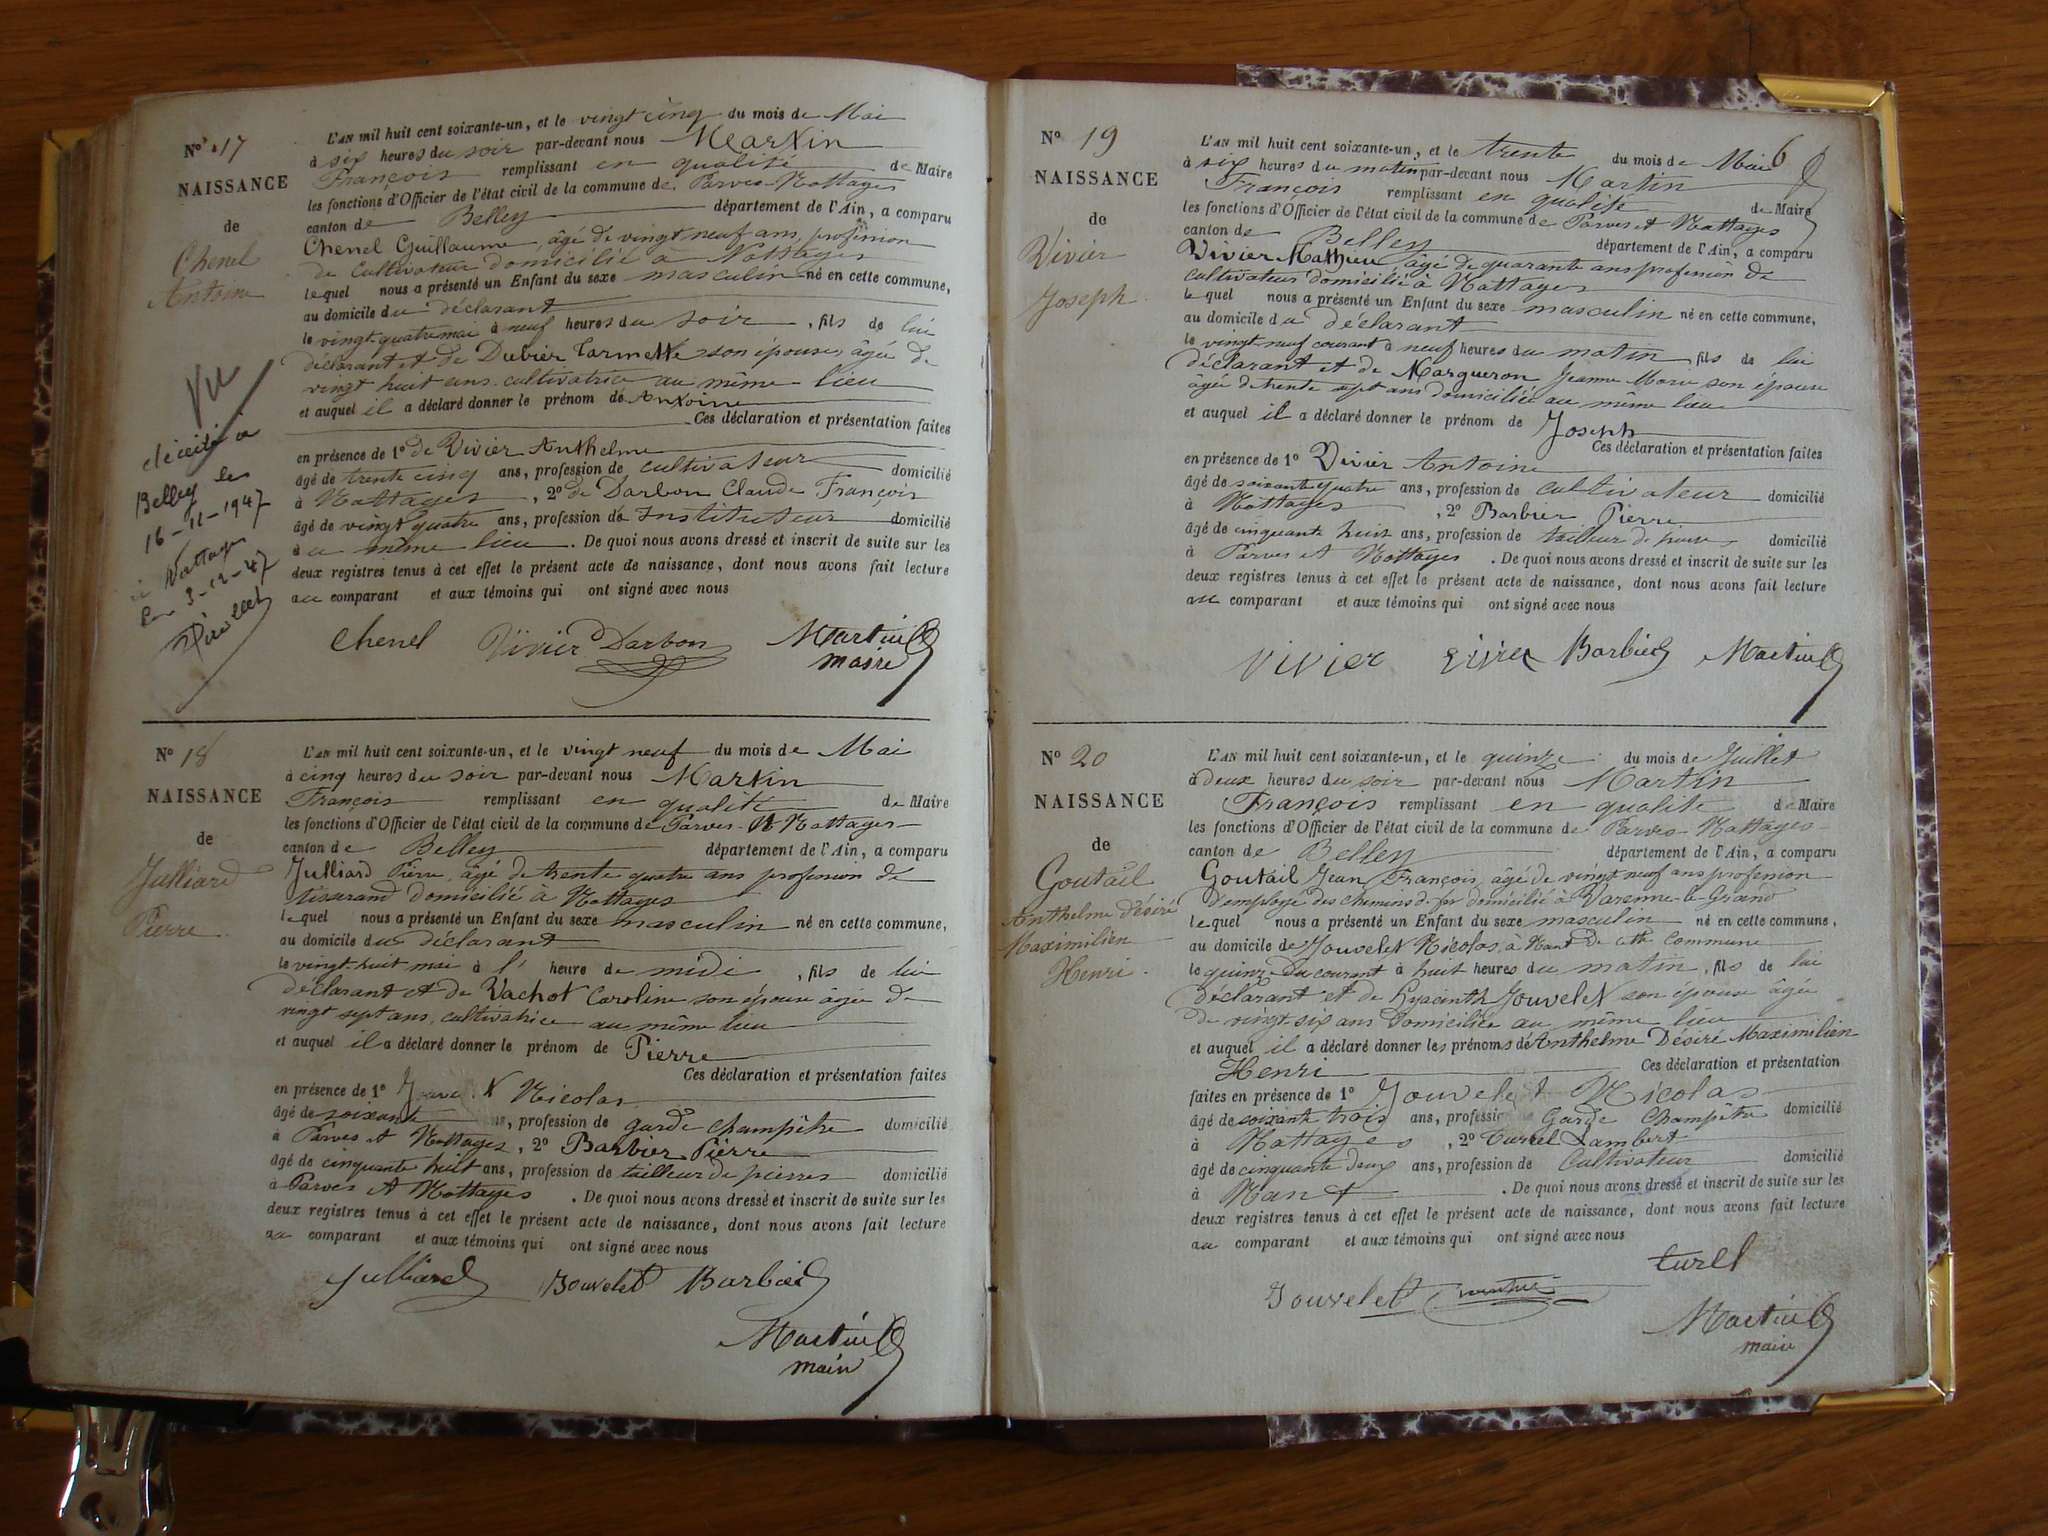 N° 17
NAISSANCE
de
Chenel
Antoine
Vu
décédé à
Belley le
16-11-1947
Nattages
3-12-47
L'AN mil huit cent soixante-un, et le vingt cinq du mois de Mai
à six heures du soir par-devant nous Martin
François remplissant en qualité de Maire
les fonctions d'Officier de l'état civil de la commune de Parves-Nattages
canton de Belley département de l'Ain, a comparu
Chenel Guillaume, âgé de vingt neuf ans, profession
de Cultivateur domicilié à Nattages
lequel nous a présenté un Enfant du sexe masculin né en cette commune,
au domicile du déclarant
le vingt-quatre mai à neuf heures du soir, fils de lui
déclarant et de Dubier son épouse, âgée de
vingt huit ans cultivatrice au même lieu
et auquel il a déclaré donner le prénom de Antoine
Ces déclaration et présentation faites
en présence de 1° de Vivier Anthelme
âgé de trente cinq ans, profession de cultivateur domicilié
à Nattages, 2° de Darbon Claude François
âgé de vingt quatre ans, profession de Instituteur domicilié
au même lieu. De quoi nous avons dressé et inscrit de suite sur les
deux registres tenus à cet effet le présent acte de naissance, dont nous avons fait lecture
au comparant et aux témoins qui ont signé avec nous
Chenel Vivier Darbon Martin
maire
N° 18
NAISSANCE
de
Julliard
Pierre
L'AN mil huit cent soixante-un, et le vingt neuf du mois de Mai
à cinq heures du soir par-devant nous Martin
François remplissant en qualité de Maire
les fonctions d'Officier de l'état civil de la commune de Parves-et Nattages
canton de Belley département de l'Ain, a comparu
Julliard Pierre, âgé de trente quatre ans profession de
tisserand domicilié à Nattages
lequel nous a présenté un Enfant du sexe masculin né en cette commune,
au domicile du déclarant
le vingt-huit mai à l' heure de midi, fils de lui
déclarant et de Vachot Caroline son épouse âgée de
vingt sept ans, cultivatrice au même lieu
et auquel il a déclaré donner le prénom de Pierre
Ces déclaration et présentation faites
en présence de 1° Nicolas
âgé de soixante ans, profession de garde champêtre domicilié
à Parves et Nattages, 2° Barbier Pierre
âgé de cinquante huit ans, profession de tailleur de pierres domicilié
à Parves et Nattages. De quoi nous avons dressé et inscrit de suite sur les
deux registres tenus à cet effet le présent acte de naissance, dont nous avons fait lecture
au comparant et aux témoins qui ont signé avec nous
Julliard Jouvelet Barbier
Martin
maire
6
N° 19
NAISSANCE
de
Vivier
Joseph
L'AN mil huit cent soixante-un, et le trente du mois de Mai
à six heures du matin par-devant nous Martin
François remplissant en qualité de Maire
les fonctions d'Officier de l'état civil de la commune de Parves et Nattages
canton de Belley département de l'Ain, a comparu
Vivier Mathieu âgé de quarante ans profession de
cultivateur domicilié à Nattages
lequel nous a présenté un Enfant du sexe masculin né en cette commune,
au domicile du déclarant
le vingt-neuf courant à neuf heures du matin, fils de lui
déclarant et de Margueron Jeanne Marie son épouse
âgée de trente sept ans domiciliée au même lieu
et auquel il a déclaré donner le prénom de Joseph
Ces déclaration et présentation faites
en présence de 1° Vivier Antoine
âgé de soixante quatre ans, profession de cultivateur domicilié
à Nattages, 2° Barbier Pierre
âgé de cinquante huit ans, profession de tailleur de pierres domicilié
à Parves et Nattages. De quoi nous avons dressé et inscrit de suite sur les
deux registres tenus à cet effet le présent acte de naissance, dont nous avons fait lecture
au comparant et aux témoins qui ont signé avec nous
vivier Barbier Martin
N° 20
NAISSANCE
de
Goutail
Anthelme Désiré
Maximilien
Henri
L'AN mil huit cent soixante-un, et le quinze du mois de Juillet
à deux heures du soir par-devant nous Martin
François remplissant en qualité de Maire
les fonctions d'Officier de l'état civil de la commune de Parves-Nattages
canton de Belley département de l'Ain, a comparu
Goutail Jean François âgé de vingt neuf ans profession
d'employé des chemins de fer domicilié à Varenne-le-Grand
lequel nous a présenté un Enfant du sexe masculin né en cette commune,
au domicile de Jouvelet Nicolas, à Nant de cette Commune
le quinze du courant à huit heures du matin, fils de lui
déclarant et de Hyacinth Jouvelet son épouse âgée
de vingt-six ans domiciliée au même lieu
et auquel il a déclaré donner les prénoms de Anthelme Désiré Maximilien
Henri Ces déclaration et présentation
faites en présence de 1° Jouvelet Nicolas
âgé de soixante trois ans, profession Garde Champêtre domicilié
à Nattages, 2° Turrel Lambert
âgé de cinquante deux ans, profession de Cultivateur domicilié
à Nant. De quoi nous avons dressé et inscrit de suite sur les
deux registres tenus à cet effet le présent acte de naissance, dont nous avons fait lecture
au comparant et aux témoins qui ont signé avec nous
turel
Jouvelet
Martin
maire